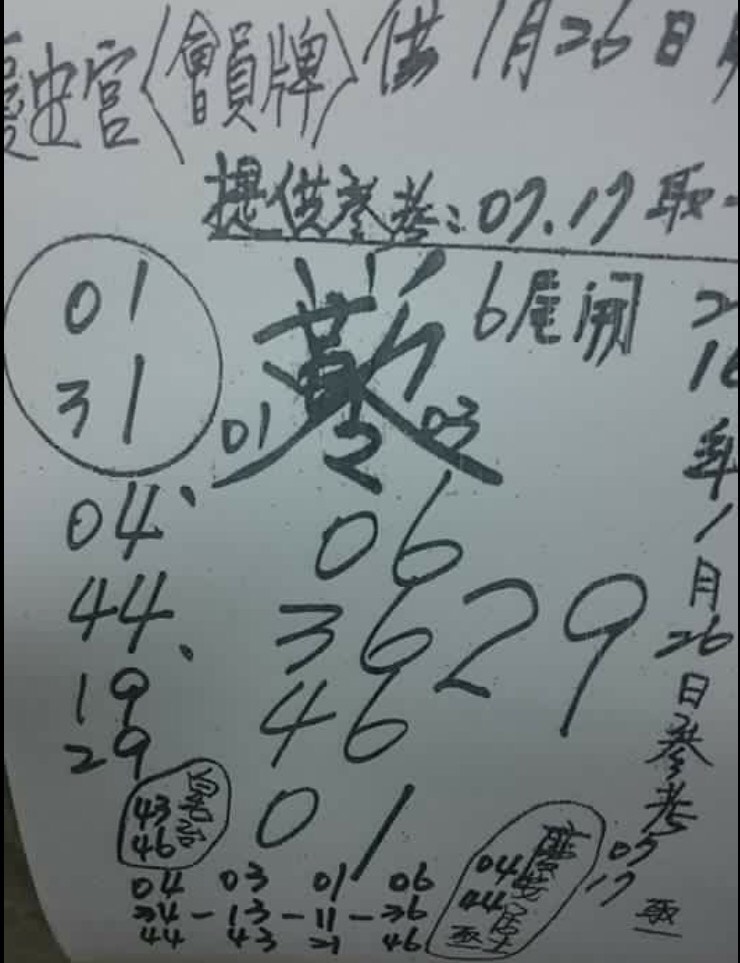 慶安宮〈會員牌〉供1月26日
提供參考:07.17取一
01
31
6尾開
01 03
2
04、
44、
19
29
06
36
46
29
01
16年1月26日參考
07
17
取
43
46
04 03 01 06
34-13-11-36
44 43 21 46
04
44
取